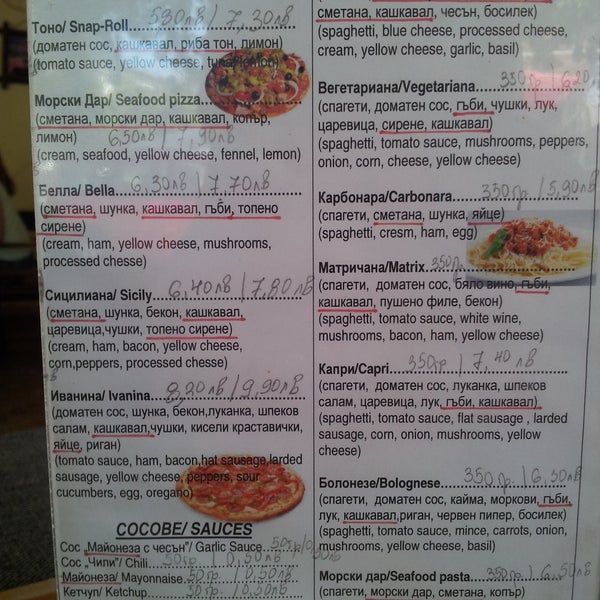 Тоно/ Snap-Roll 5,80лв / 7,30лв
(доматен сос, кашкавал, риба тон, лимон)
(tomato sauce, yellow cheese, tuna, lemon)
Морски Дар/ Seafood pizza
(сметана, морски дар, кашкавал, копър,
лимон) 6,50лв / 7,90лв
(cream, seafood, yellow cheese, fennel, lemon)
Белла/ Bella 6,30лв / 7,70лв
(сметана, шунка, кашкавал, гъби, топено
сирене)
(cream, ham, yellow cheese, mushrooms,
processed chesse)
Сицилиана/ Sicily 6,40лв / 7,80лв
(сметана, шунка, бекон, кашкавал,
царевица,чушки, топено сирене)
(cream, ham, bacon, yellow cheese,
corn,peppers, processed chesse)
Иванина/ Ivanina 8,20лв / 9,90лв
(доматен сос, шунка, бекон,луканка, шпеков
салам, кашкавал,чушки, кисели краставички,
яйце, риган)
(tomato sauce, ham, bacon,hat sausage,larded
sausage, yellow cheese, peppers, sour
cucumbers, egg, oregano)
СОСОВЕ/ SAUCES
Сос „Майонеза с чесън”/ Garlic Sauce 50гр/0,50лв
Сос „Чили”/ Chili 50гр / 0,50лв
Майонеза/ Mayonnaise 50гр / 0,50лв
Кетчуп/ Ketchup 50гр / 0,50лв
сметана, кашкавал, чесън, босилек)
(spaghetti, blue cheese, processed cheese,
cream, yellow cheese, garlic, basil)
Вегетариана/Vegetariana 350гр / 6,20
(спагети, доматен сос, гъби, чушки, лук,
царевица, сирене, кашкавал)
(spaghetti, tomato sauce, mushrooms, peppers,
onion, corn, cheese, yellow cheese)
Карбонара/Carbonara 350гр / 5,90лв
(спагети, сметана, шунка, яйце)
(spaghetti, cresm, ham, egg)
Матричана/Matrix 350гр
(спагети, доматен сос, бяло вино, гъби,
кашкавал, пушено филе, бекон)
(spaghetti, tomato sauce, white wine,
mushrooms, bacon, ham, yellow cheese)
Капри/Capri 350гр / 7,40лв
(спагети, доматен сос, луканка, шпеков
салам, царевица, лук, гъби, кашкавал)
(spaghetti, tomato sauce, flat sausage , larded
sausage, corn, onion, mushrooms, yellow
cheese)
Болонезе/Bolognese 350гр / 6,50лв
(спагети, доматен сос, кайма, моркови, гъби,
лук, кашкавал,риган, червен пипер, босилек)
(spaghetti, tomato sauce, mince, carrots, onion,
mushrooms, yellow cheese, basil)
Морски дар/Seafood pasta 350гр / 6,50лв
(спагети, морски дар, сметана, копър)